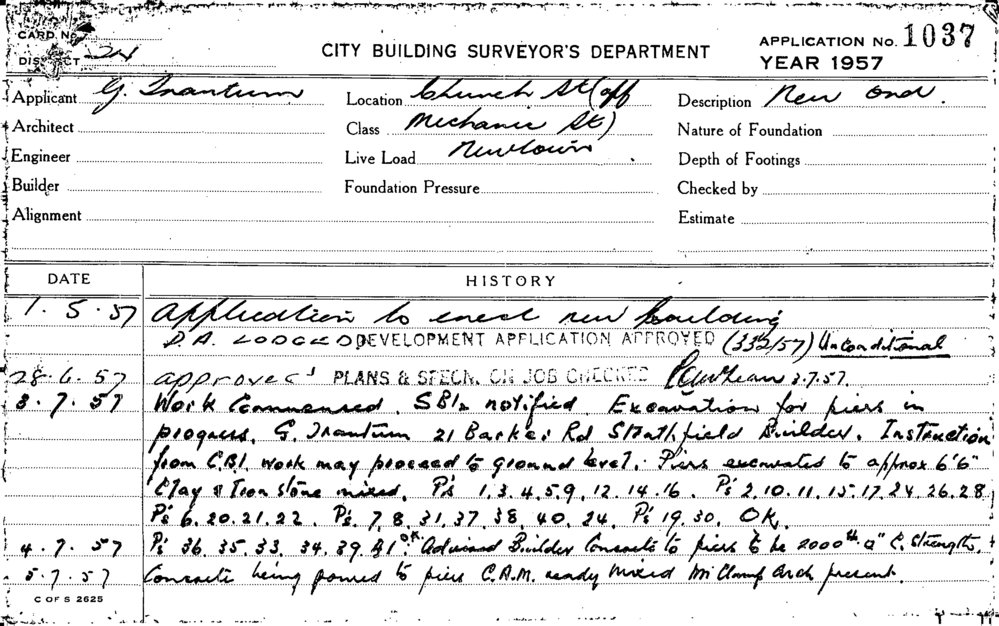 CARD No.
DISTRICT 24
CITY BUILDING SURVEYOR'S DEPARTMENT
APPLICATION No. 1037
YEAR 1957
Applicant G. Trantum
Location Church St (off
Description New Ond.
Architect
Class Mechanic St)
Nature of Foundation
Engineer
Live Load Newtown
Depth of Footings
Builder
Foundation Pressure
Checked by
Alignment
Estimate
DATE HISTORY
1.5.57 Application to erect new building
D.A. LODGED DEVELOPMENT APPLICATION APPROVED (332/57) Unconditional
28.6.57 approved PLANS & SPECN. ON JOB CHECKED 3.7.57.
3.7.57 Work Commenced. SBI. notified. Excavation for piers in
progress. G. Trantum 21 Barker Rd Strathfield Builder. Instruction
from C.B.I. work may proceed to ground level. Piers excavated to approx 6'6"
Clay & Iron stone mixed. P's 1.3.4.5.9.12.14.16. P's 2.10.11.15.17.24.26.28.
P's 6.20.21.22. P's. 7.8.31.37.38.40.24. P's 19.30. OK.
4.7.57 P's 36.35.33.34.39.41. OK. Advised Builder Concrete to piers to be 2000 lb. □" C. Strength.
5.7.57 Concrete being poured to piers C.A.M. ready mixed Arch present.
C OF S 2625